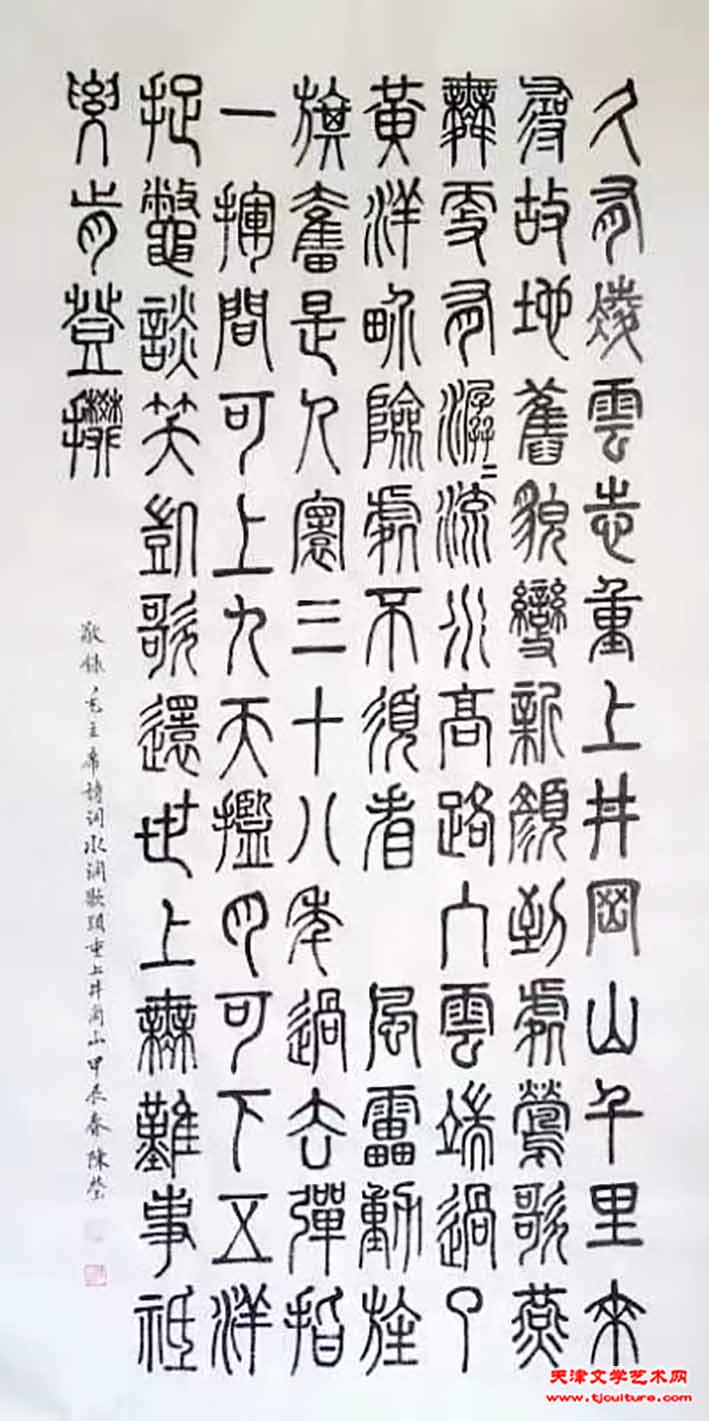 久有凌雲志重上井岡山千里來
尋故地舊貌變新顏到處鶯歌燕
舞更有潺〻流水高路入雲端過了
黃洋界險處不須看 風雷動旌
旗奮是人寰三十八年過去彈指
一揮間可上九天攬月可下五洋
捉鱉談笑凱歌還世上無難事祇
要肯登攀
敬錄毛主席詩詞水調歌頭重上井崗山甲辰春陳
天津文学艺术网
www.tjculture.com